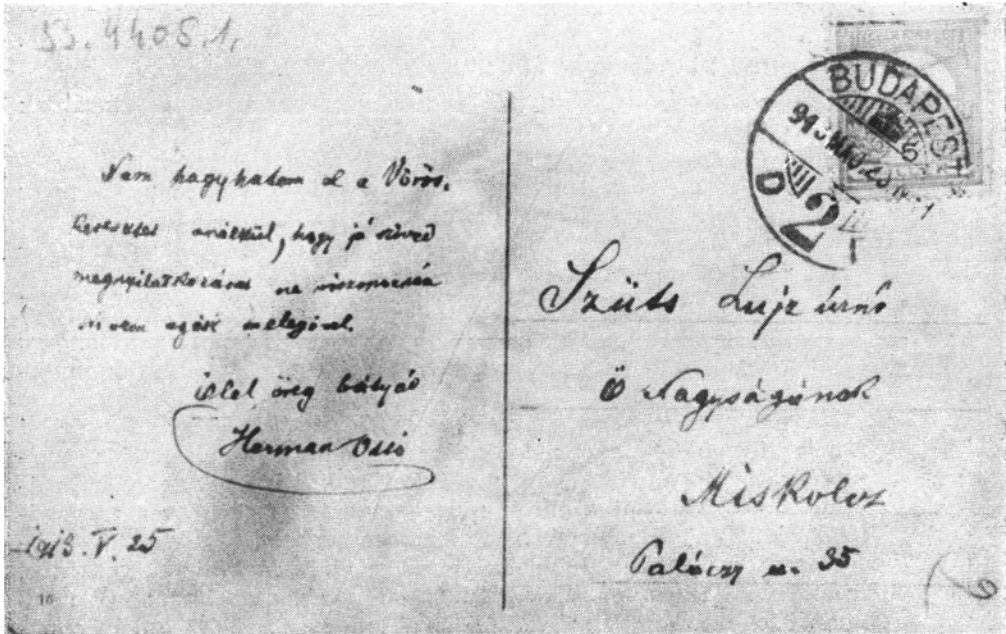 53.4405.1.
Nem hagyhatom el a Vörös.
keresztet anélkül, hogy jó szíved
megnyilatkozását ne viszonozzam
szivem egész melegével.
ölel öreg bátyád
Herman Ottó
1913. V. 25
16
BUDAPEST
913 MÁJ
D
24
Szüts Lujz úrnő
Ő Nagyságának
Miskolcz
Palóczy u. 35